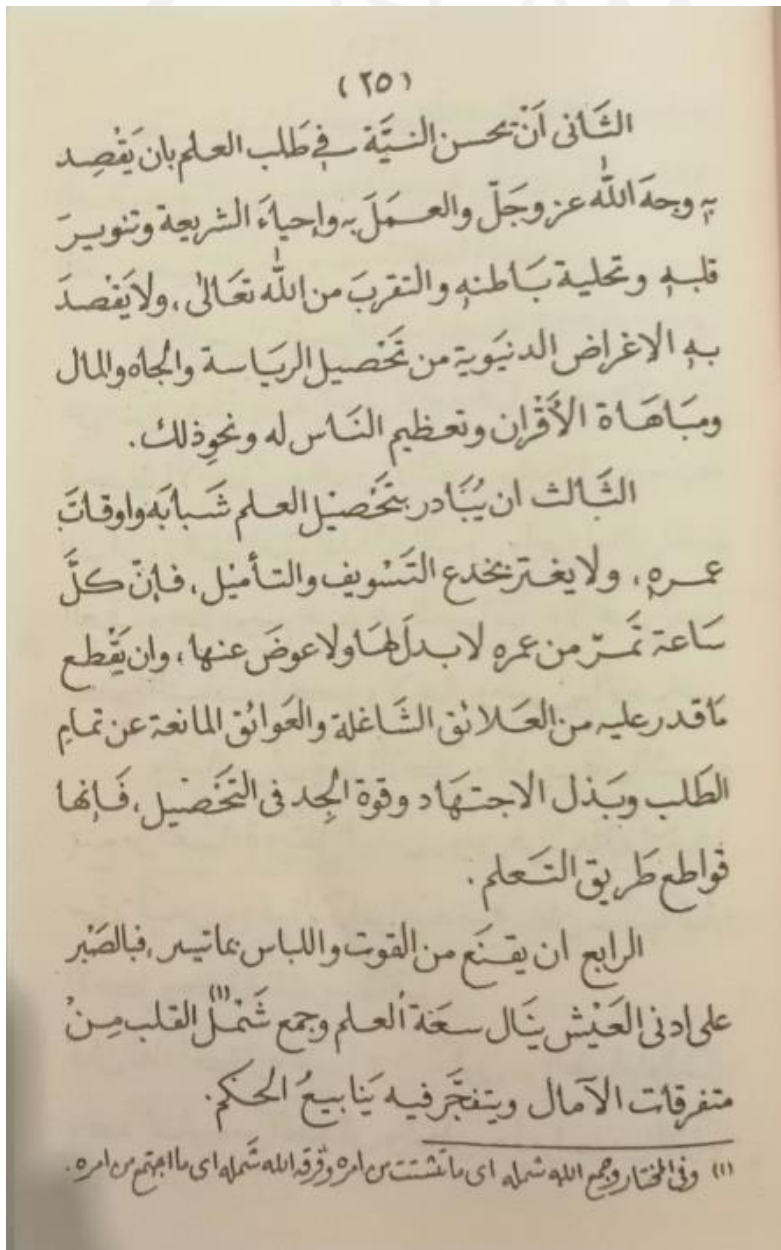 (٢٥)
الثَّانى اَنْ يحسن النيَّة في طَلب العلم بان يَقْصِد
بِهِ وجهَ اللّٰه عز وجَلّ والعمَلَ به وإحياءَ الشريعة وتنويرَ
قلبهِ وتحلية بَاطنهِ والتقربَ من اللّٰه تعَالىٰ، ولا يَقْصدَ
بهِ الاغراض الدنيَوية من تَحْصيل الريَاسة والجاه والمال
ومبَاهَاة الأَقْران وتعظيم النَاس له ونحوِ ذلك.
الثَالث ان يُبَادر بتَحْصيْل العلم شَبابَه واوقاتَ
عمرهِ، ولا يغتر بخدع التَسْويف والتأميْل، فإنّ كلَّ
سَاعة تَمرّ من عمرهِ لا بدلَ لهَا ولا عوضَ عنها، وان يَقْطع
مَا قدر عليه من العَلائق الشَاغلة والعَوائق المانعة عن تمامِ
الطَلب وبَذل الاجتهَاد وقوة الجِد فى التَحْصيل، فَإنها
قواطع طَريق التَعلم.
الرابع ان يقنَع من القوت واللباس بما تيسر، فبالصَبْر
على ادنى العَيْش ينَال سعَةَ العلم وجمع شَمْلُ(١) القلب مِنْ
متفرقات الآمال ويتفجَّر فيه يَنابيعُ الحكم.
(١) وفى المختار وجمع الله شمله اى ما تشتت من امره وفَرقه الله شَمله اى ما اجتمع من امره.